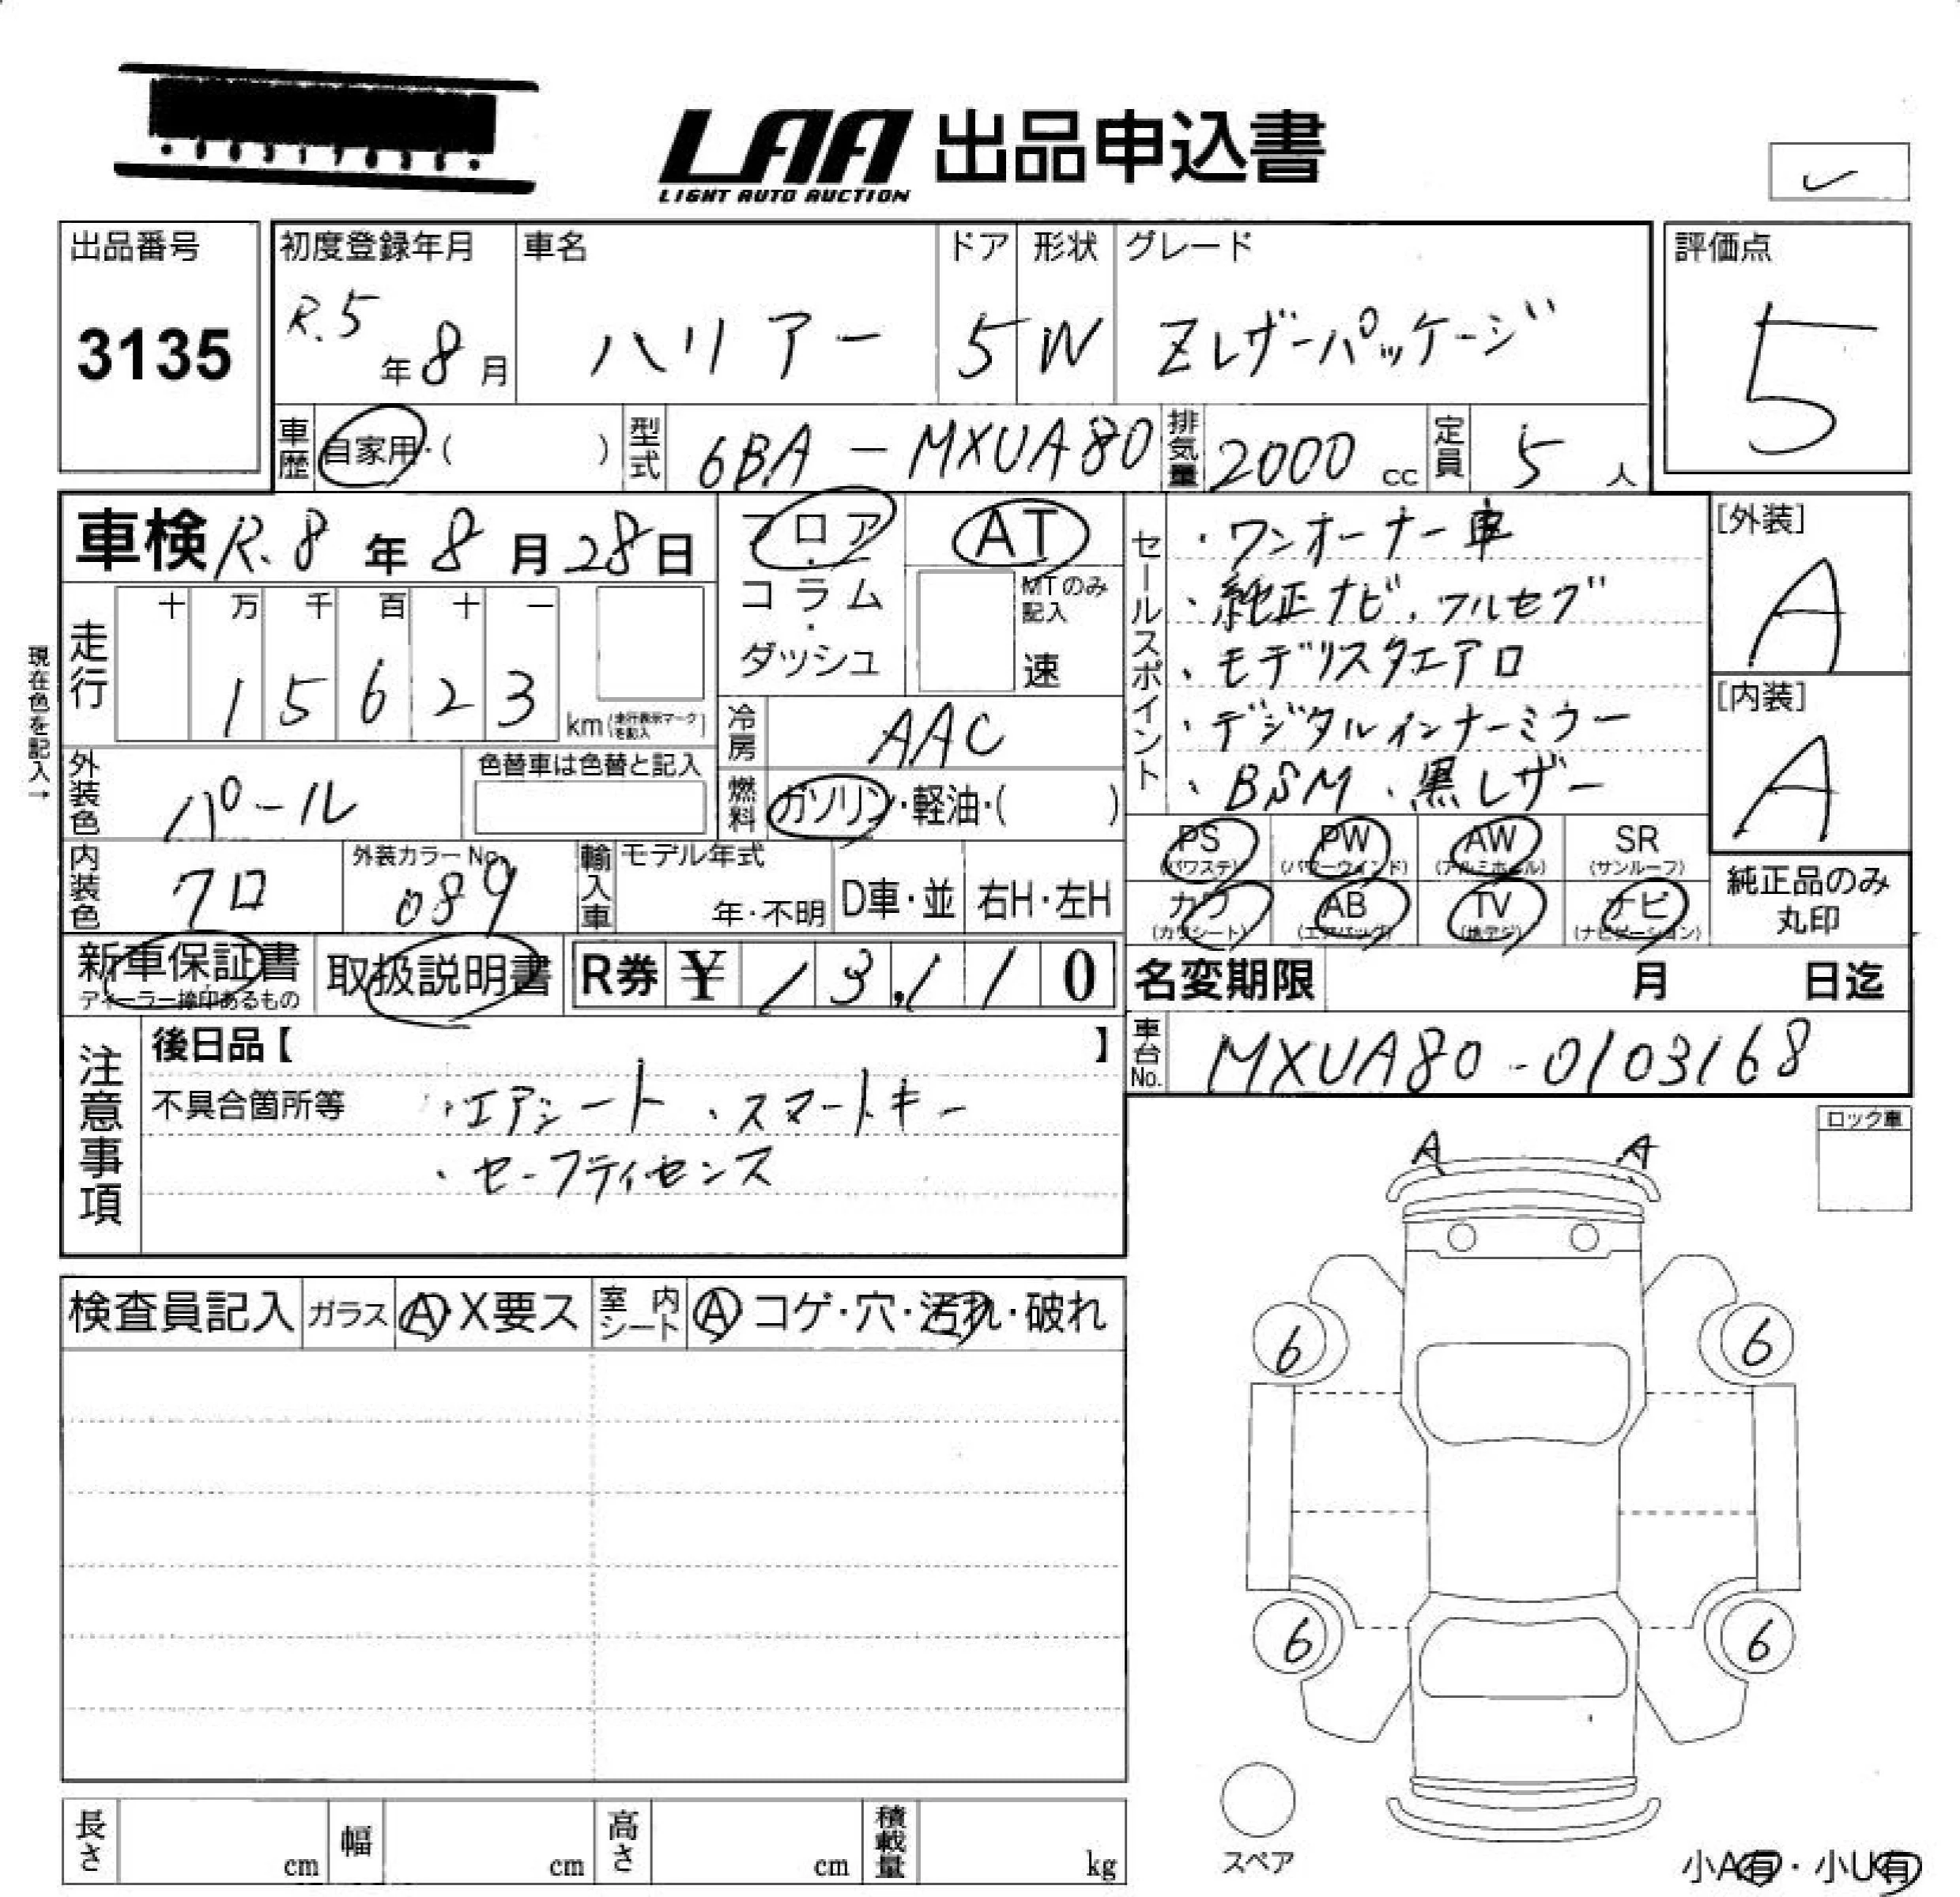 LAA 出品申込書
LIGHT AUTO AUCTION
出品番号
3135
初度登録年月
R.5年8月
車名
ハリアー
ドア
5
形状
W
グレード
Zレザーパッケージ
評価点
5
車歴
自家用・( )
型式
6BA-MXUA80
排気量
2000cc
定員
5人
車検 R.8年8月28日
走行
十 万 千 百 十 一
1 5 6 2 3 km
(走行表示マークを記入)
現在色を記入→
外装色
パール
色替車は色替と記入
内装色
クロ
外装カラーNo.
089
フロア・コラム・ダッシュ
AT
MTのみ記入
速
冷房
AAC
燃料
ガソリン・軽油・( )
輸入車
モデル年式
年・不明
D車・並
右H・左H
セールスポイント
・ワンオーナー車
・純正ナビ、フルセグ
・モデリスタエアロ
・デジタルインナーミラー
・BSM、黒レザー
[外装]
A
[内装]
A
PS (パワステ)
PW (パワーウインド)
AW (アルミホイール)
SR (サンルーフ)
カワ (カワシート)
AB (エアバッグ)
TV (地デジ)
ナビ (ナビゲーション)
純正品のみ丸印
新車保証書
ディーラー捺印あるもの
取扱説明書
R券 ¥ 13,110
名変期限 月 日迄
車台No.
MXUA80-0103168
注意事項
後日品【 】
不具合箇所等
・エアシート、スマートキー
・セーフティセンス
ロック車
A A
検査員記入
ガラス
A・X要ス
室内シート
A コゲ・穴・汚れ・破れ
6 6
6 6
スペア
長さ cm
幅 cm
高さ cm
積載量 kg
小A有・小U有